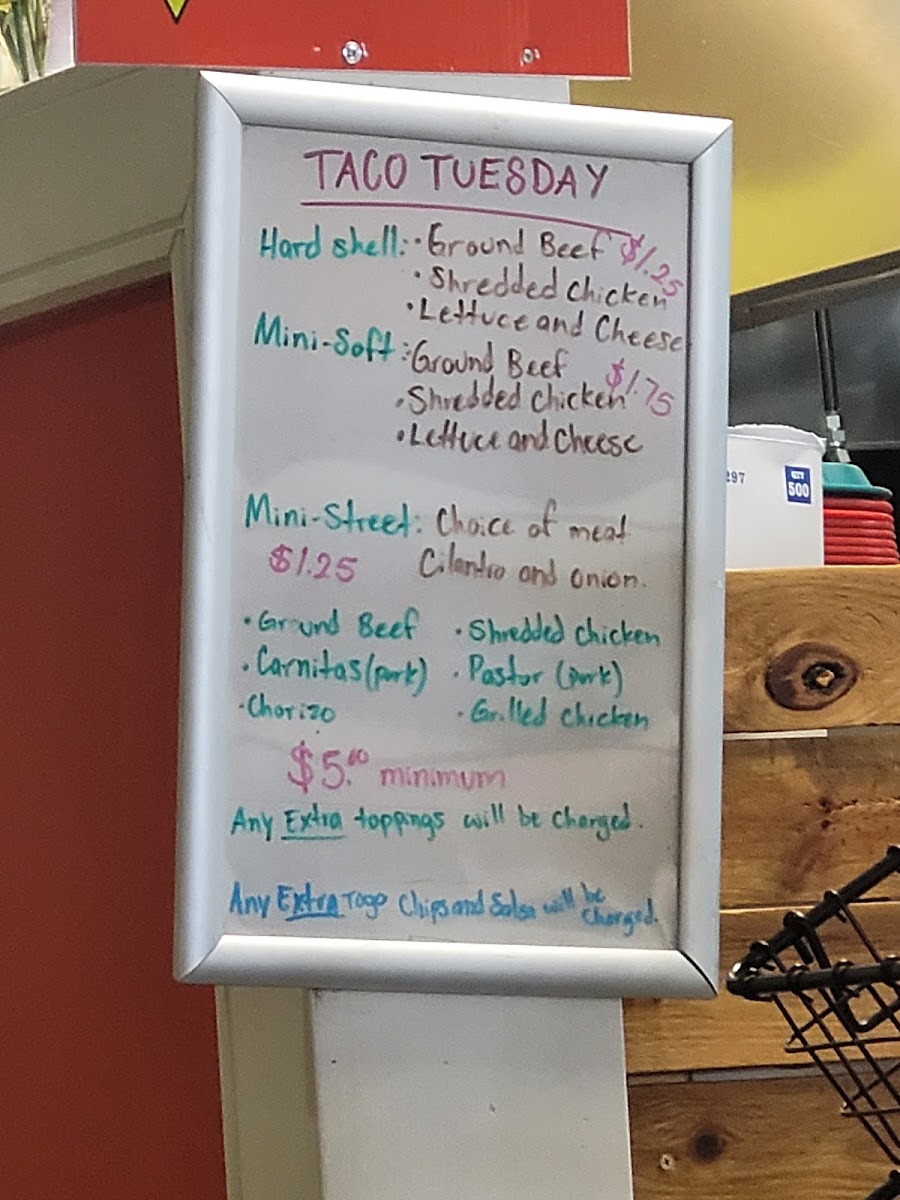 TACO TUESDAY
Hard shell: • Ground Beef $1.25
• Shredded Chicken
• Lettuce and Cheese
Mini-Soft: Ground Beef $1.75
• Shredded Chicken
• Lettuce and Cheese
Mini-Street: Choice of meat
$1.25 Cilantro and onion.
• Ground Beef • Shredded Chicken
• Carnitas (pork) • Pastor (pork)
• Chorizo • Grilled Chicken
$5.00 minimum
Any Extra toppings will be charged.
Any Extra Togo Chips and Salsa will be charged.
297
QTY
500